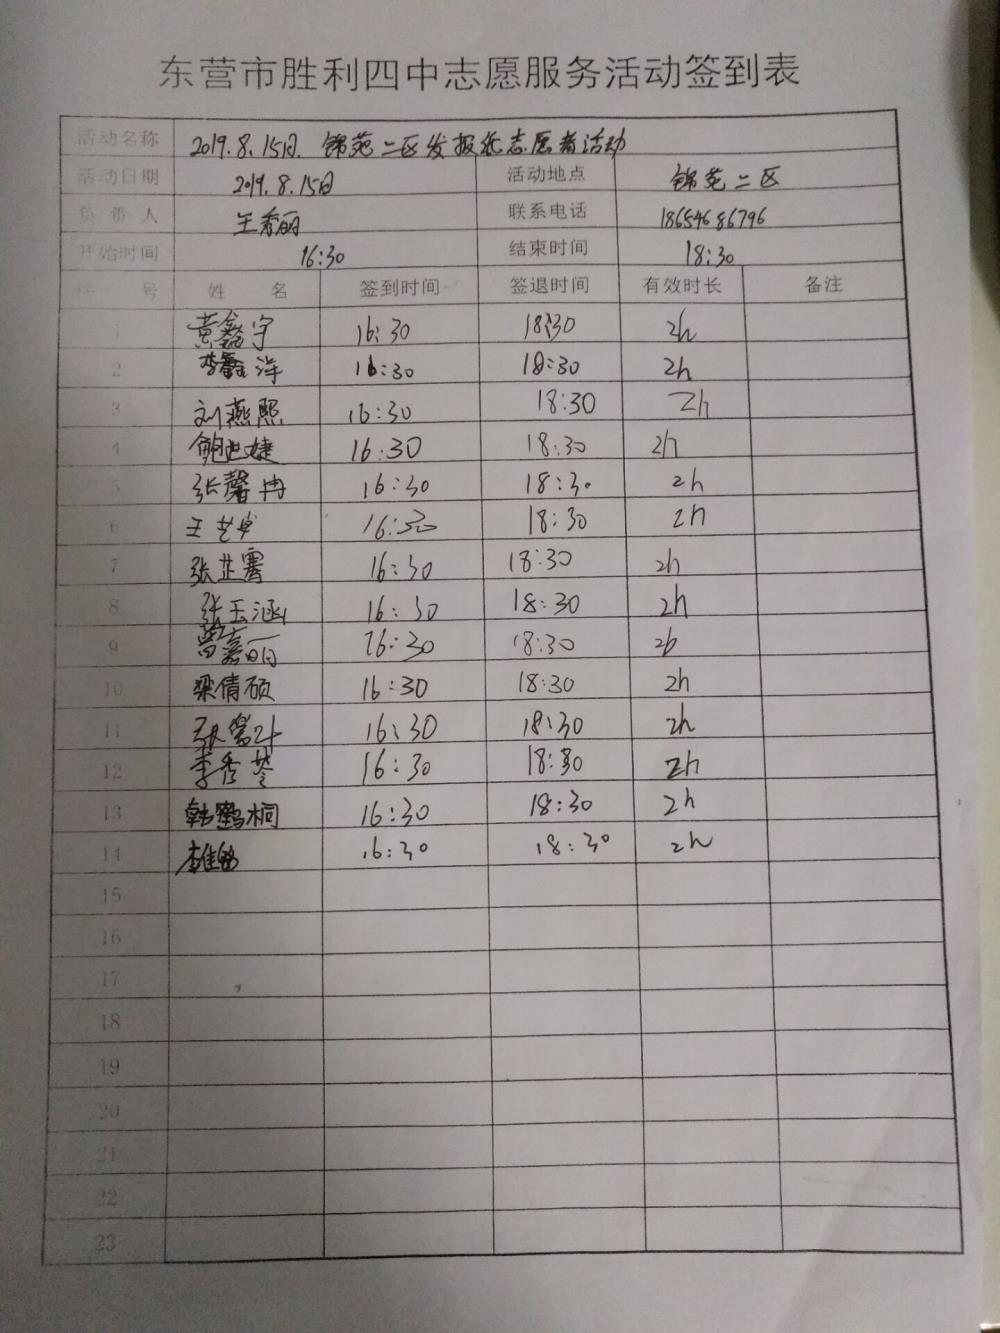 东营市胜利四中志愿服务活动签到表
活动名称 2019.8.15日.锦苑二区发报纸志愿者活动
活动日期 2019.8.15日 活动地点 锦苑二区
负责人 王秀丽 联系电话 18654686796
开始时间 16:30 结束时间 18:30
序号 姓名 签到时间 签退时间 有效时长 备注
1 黄鑫宇 16:30 18:30 2h
2 李鑫洋 16:30 18:30 2h
3 刘燕熙 16:30 18:30 2h
4 鲍婕 16:30 18:30 2h
5 张馨冉 16:30 18:30 2h
6 王艺卓 16:30 18:30 2h
7 张芷 16:30 18:30 2h
8 张玉涵 16:30 18:30 2h
9 嘉 16:30 18:30 2h
10 梁倩硕 16:30 18:30 2h
11 张 16:30 18:30 2h
12 李秀 16:30 18:30 2h
13 韩鹤桐 16:30 18:30 2h
14 16:30 18:30 2h
15
16
17
18
19
20
21
22
23